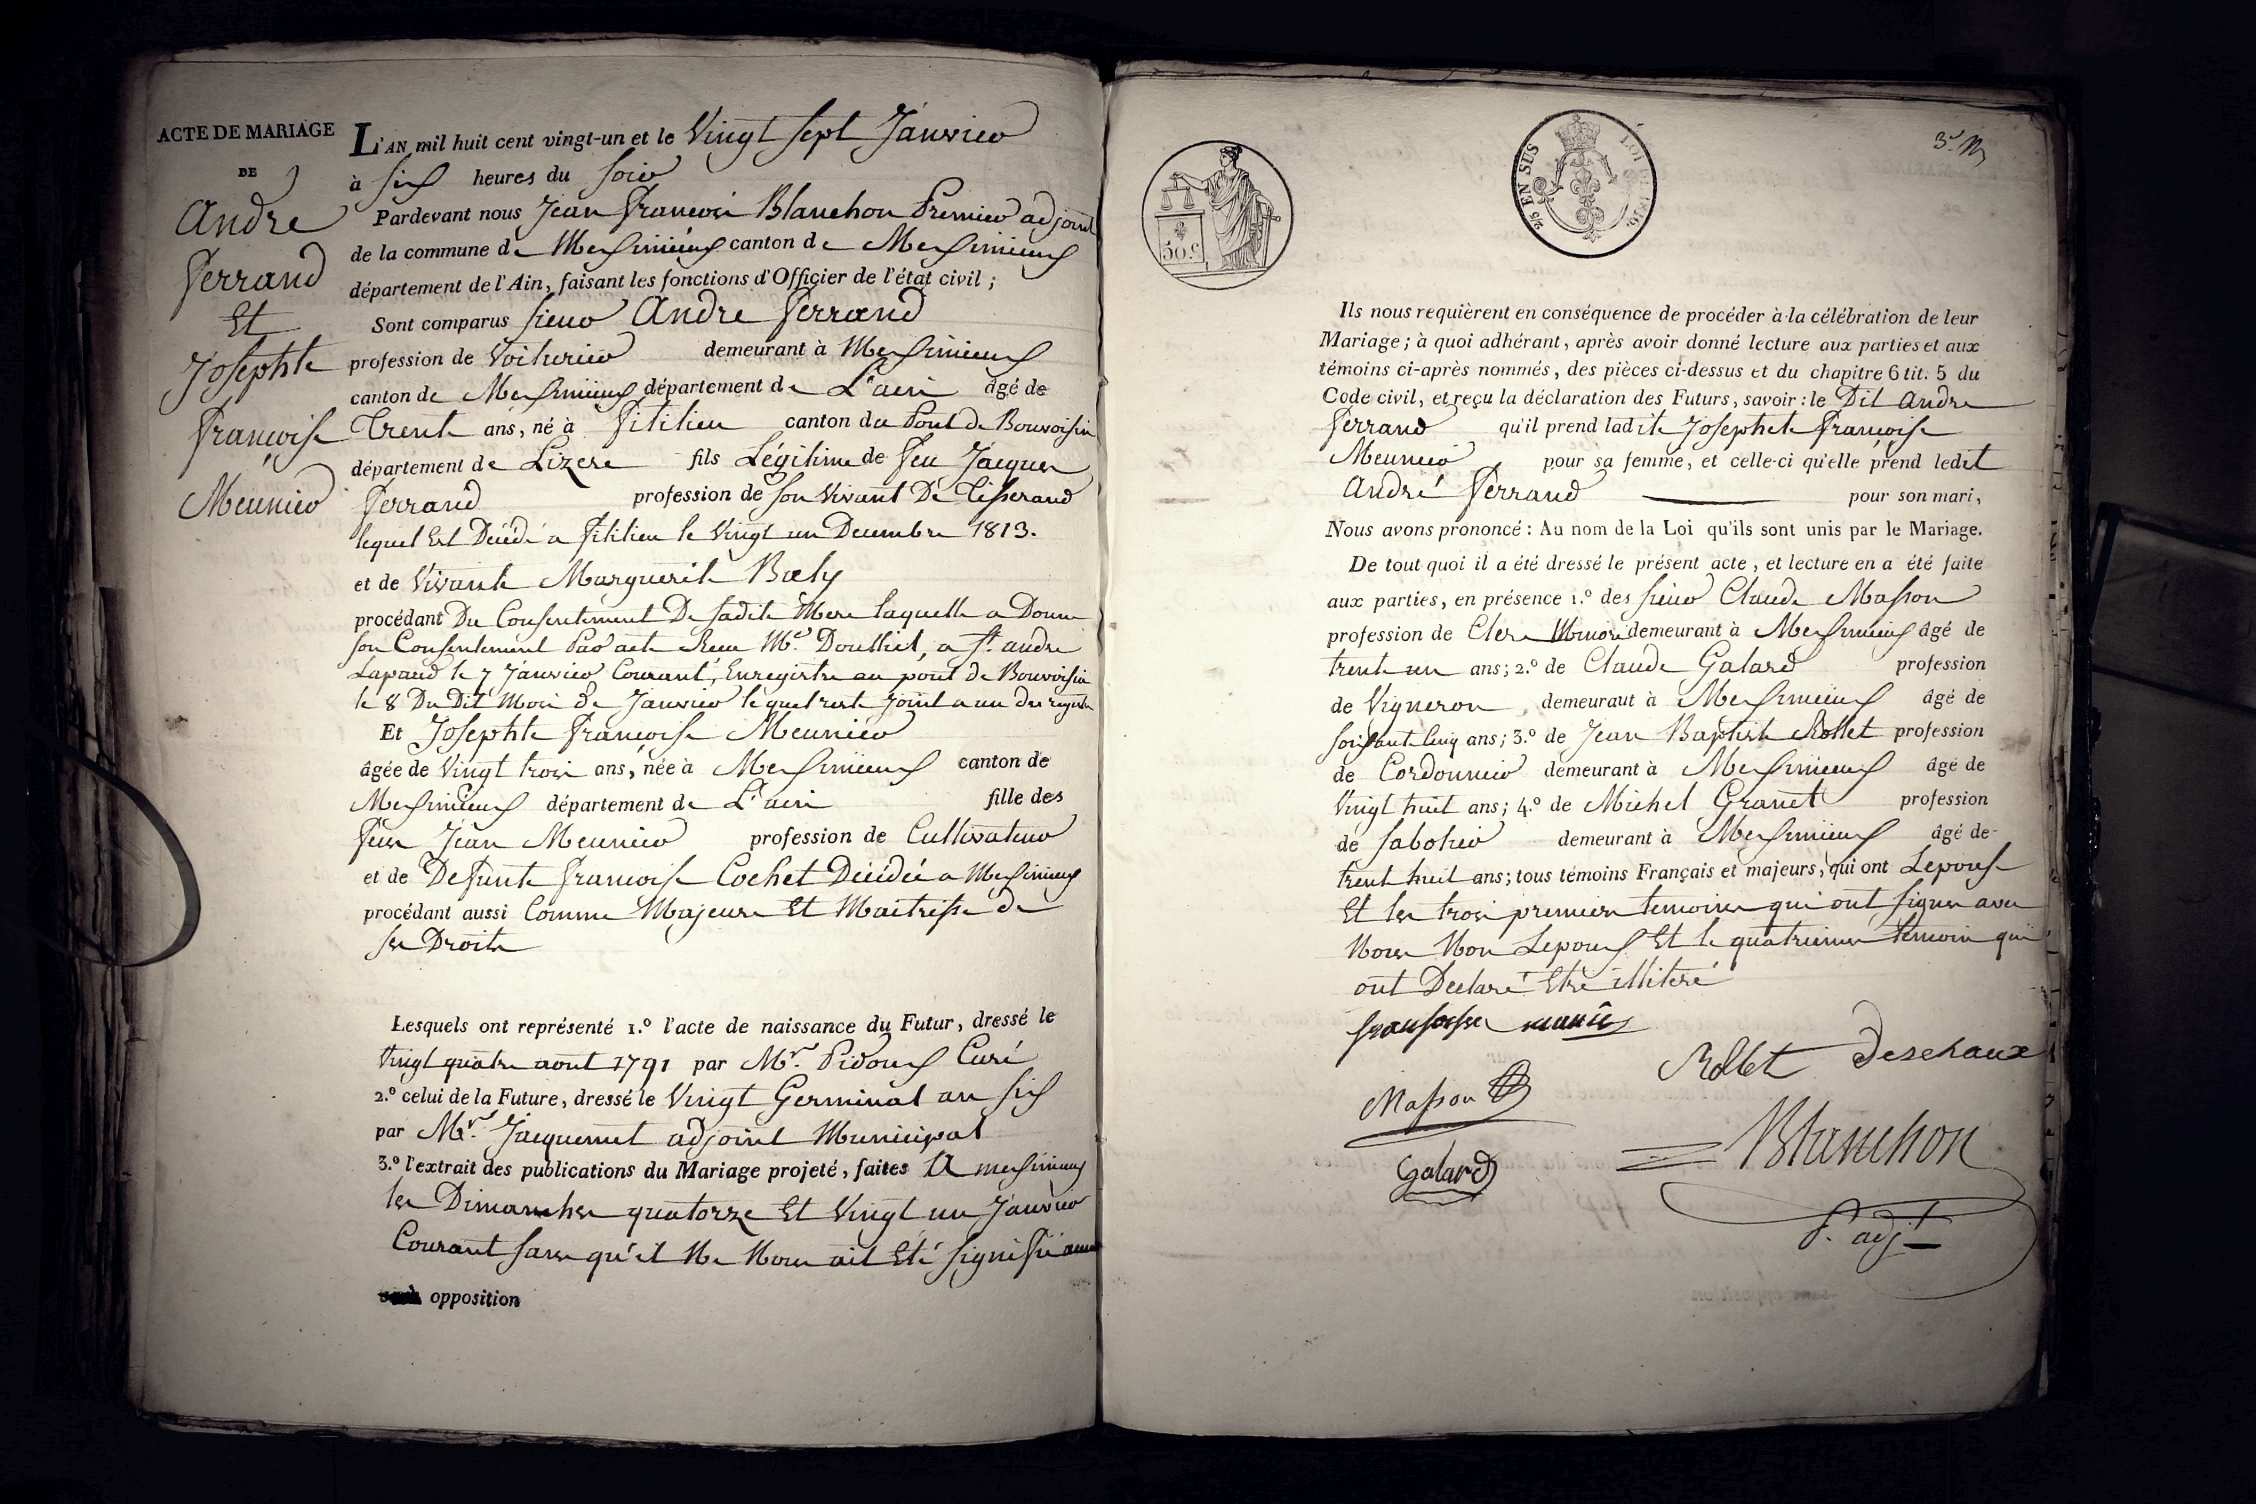 ACTE DE MARIAGE
DE
André
Ferrand
Et
Josephte
Françoise
Meunier
L'AN mil huit cent vingt-un et le Vingt Sept Janvier
à Six heures du Soir
Pardevant nous Jean François Blanchon Premier adjoint
de la commune de Messimieux canton de Messimieux
département de l'Ain, faisant les fonctions d'Officier de l'état civil ;
Sont comparus Sieur André Ferrand
profession de Voiturier demeurant à Messimieux
canton de Messimieux département de L'ain âgé de
Trente ans, né à Fitilieu canton du Pont de Bonvoisin
département de Lizere fils Légitime de feu Jacques
Ferrand profession de Son Vivant De Tisserand
lequel Est Décédé a Fitilieu le Vingt un Decembre 1813.
et de Vivante Marguerite Boely
procédant Du Consentement De Sadite Mere laquelle a Donne
Son Consentement Par acte Recu Mr. Doulliet, a St. andre
Lapaud le 7 Janvier Courant, Enregistre au pont de Bonvoisin
le 8 Du Dit Mois de Janvier lequel reste Joint a un des registres
Et Josephte Françoise Meunier
âgée de Vingt trois ans, née à Messimieux canton de
Messimieux département de L'ain fille des
feus Jean Meunier profession de Cultivateur
et de Defunte Françoise Cochet Décédée a Messimieux
procédant aussi Comme Majeure Et Maitresse de
ses Droits
Lesquels ont représenté 1.º l'acte de naissance du Futur, dressé le
Vingt quatre aout 1791 par Mr. Pidoux Curé
2.º celui de la Future, dressé le Vingt Germinal an Six
par Mr. Jacquemet adjoint Municipal
3.º l'extrait des publications du Mariage projeté, faites A messimieux
les Dimanches quatorze Et Vingt un Janvier
Courant sans qu'il Ne Nous ait Eté signifié aucune
opposition
50 C.
2/5 EN SUS
LOI DE 1816.
3e. M
Ils nous requièrent en conséquence de procéder à la célébration de leur
Mariage ; à quoi adhérant, après avoir donné lecture aux parties et aux
témoins ci-après nommés, des pièces ci-dessus et du chapitre 6 tit. 5 du
Code civil, et reçu la déclaration des Futurs, savoir : le Dit Andre
Ferrand qu'il prend ladite Josephete Françoise
Meunier pour sa femme, et celle-ci qu'elle prend ledit
André Ferrand pour son mari,
Nous avons prononcé : Au nom de la Loi qu'ils sont unis par le Mariage.
De tout quoi il a été dressé le présent acte, et lecture en a été faite
aux parties, en présence 1.º des Sieur Claude Masson
profession de Clerc demeurant à Messimieux âgé de
trente un ans ; 2.º de Claude Galard profession
de Vigneron demeuraut à Messimieux âgé de
Soixante Cinq ans ; 3.º de Jean Baptiste Rollet profession
de Cordonnier demeurant à Messimieux âgé de
Vingt huit ans ; 4.º de Michel Granet profession
de Sabotier demeurant à Messimieux âgé de
trente huit ans ; tous témoins Français et majeurs, qui ont Lepouse
Et les trois premiers temoins qui ont signer avec
Nous Non Lepoux Et le quatrieme temoin qui
ont Declaré Etre illiteré
Masson
Rollet
Deschaux
Galard
Blanchon
P. adjt